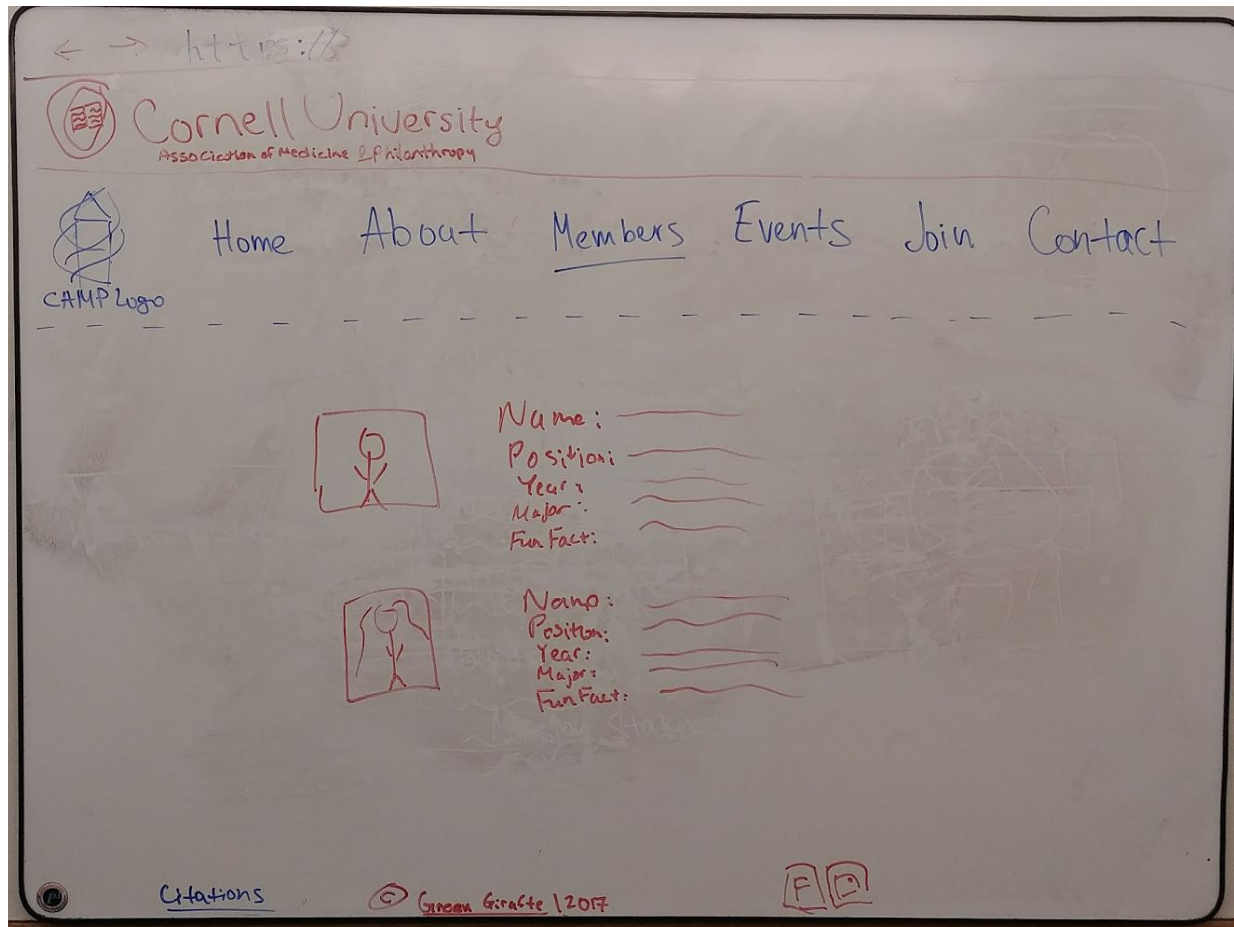 ← → https://
Cornell University
Association of Medicine & Philanthropy
Home About Members Events Join Contact
CAMP Logo
Name:
Position:
Year:
Major:
Fun Fact:
Name:
Position:
Year:
Major:
Fun Fact:
Citations © Green Giraffe | 2017 F